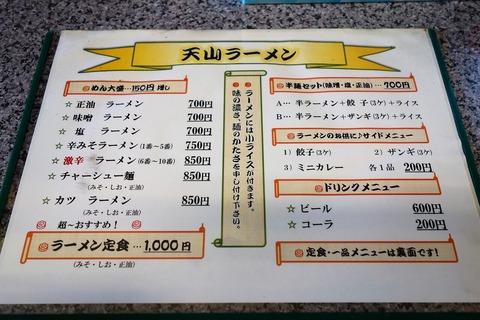 天山ラーメン
めん大盛…150円増し
☆ 正油 ラーメン 700円
☆ 味噌 ラーメン 700円
☆ 塩 ラーメン 700円
☆ 辛みそラーメン(1番~5番) 750円
☆ 激辛 ラーメン(6番~10番) 850円
☆ チャーシュー麺 850円
(みそ・しお・正油)
☆ カツ ラーメン 850円
(みそ・しお・正油)
超~おすすめ!
ラーメン定食…1,000円
(みそ・しお・正油)
ラーメンには小ライスが付きます。
味の濃さ、麺のかたさを申し付け下さい。
半麺セット(味噌・塩・正油)…700円
A… 半ラーメン+餃子(3ケ)+ライス
B… 半ラーメン+ザンギ(3ケ)+ライス
ラーメンのお供に♪サイドメニュー
1) 餃子(3ケ) 2) ザンギ(3ケ)
3) ミニカレー 各1品 200円
ドリンクメニュー
☆ ビール 600円
☆ コーラ 200円
定食・一品メニューは裏面です!